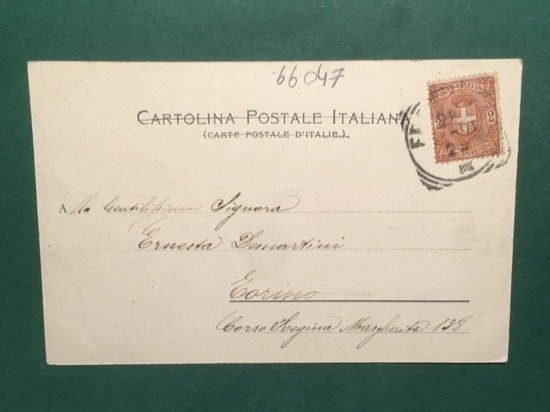 66047
CARTOLINA POSTALE ITALIANA
(CARTE POSTALE D'ITALIE.)
2
A lla Gentilissima Signora
Ernesta Demartini
Torino
Corso Regina Margherita 138